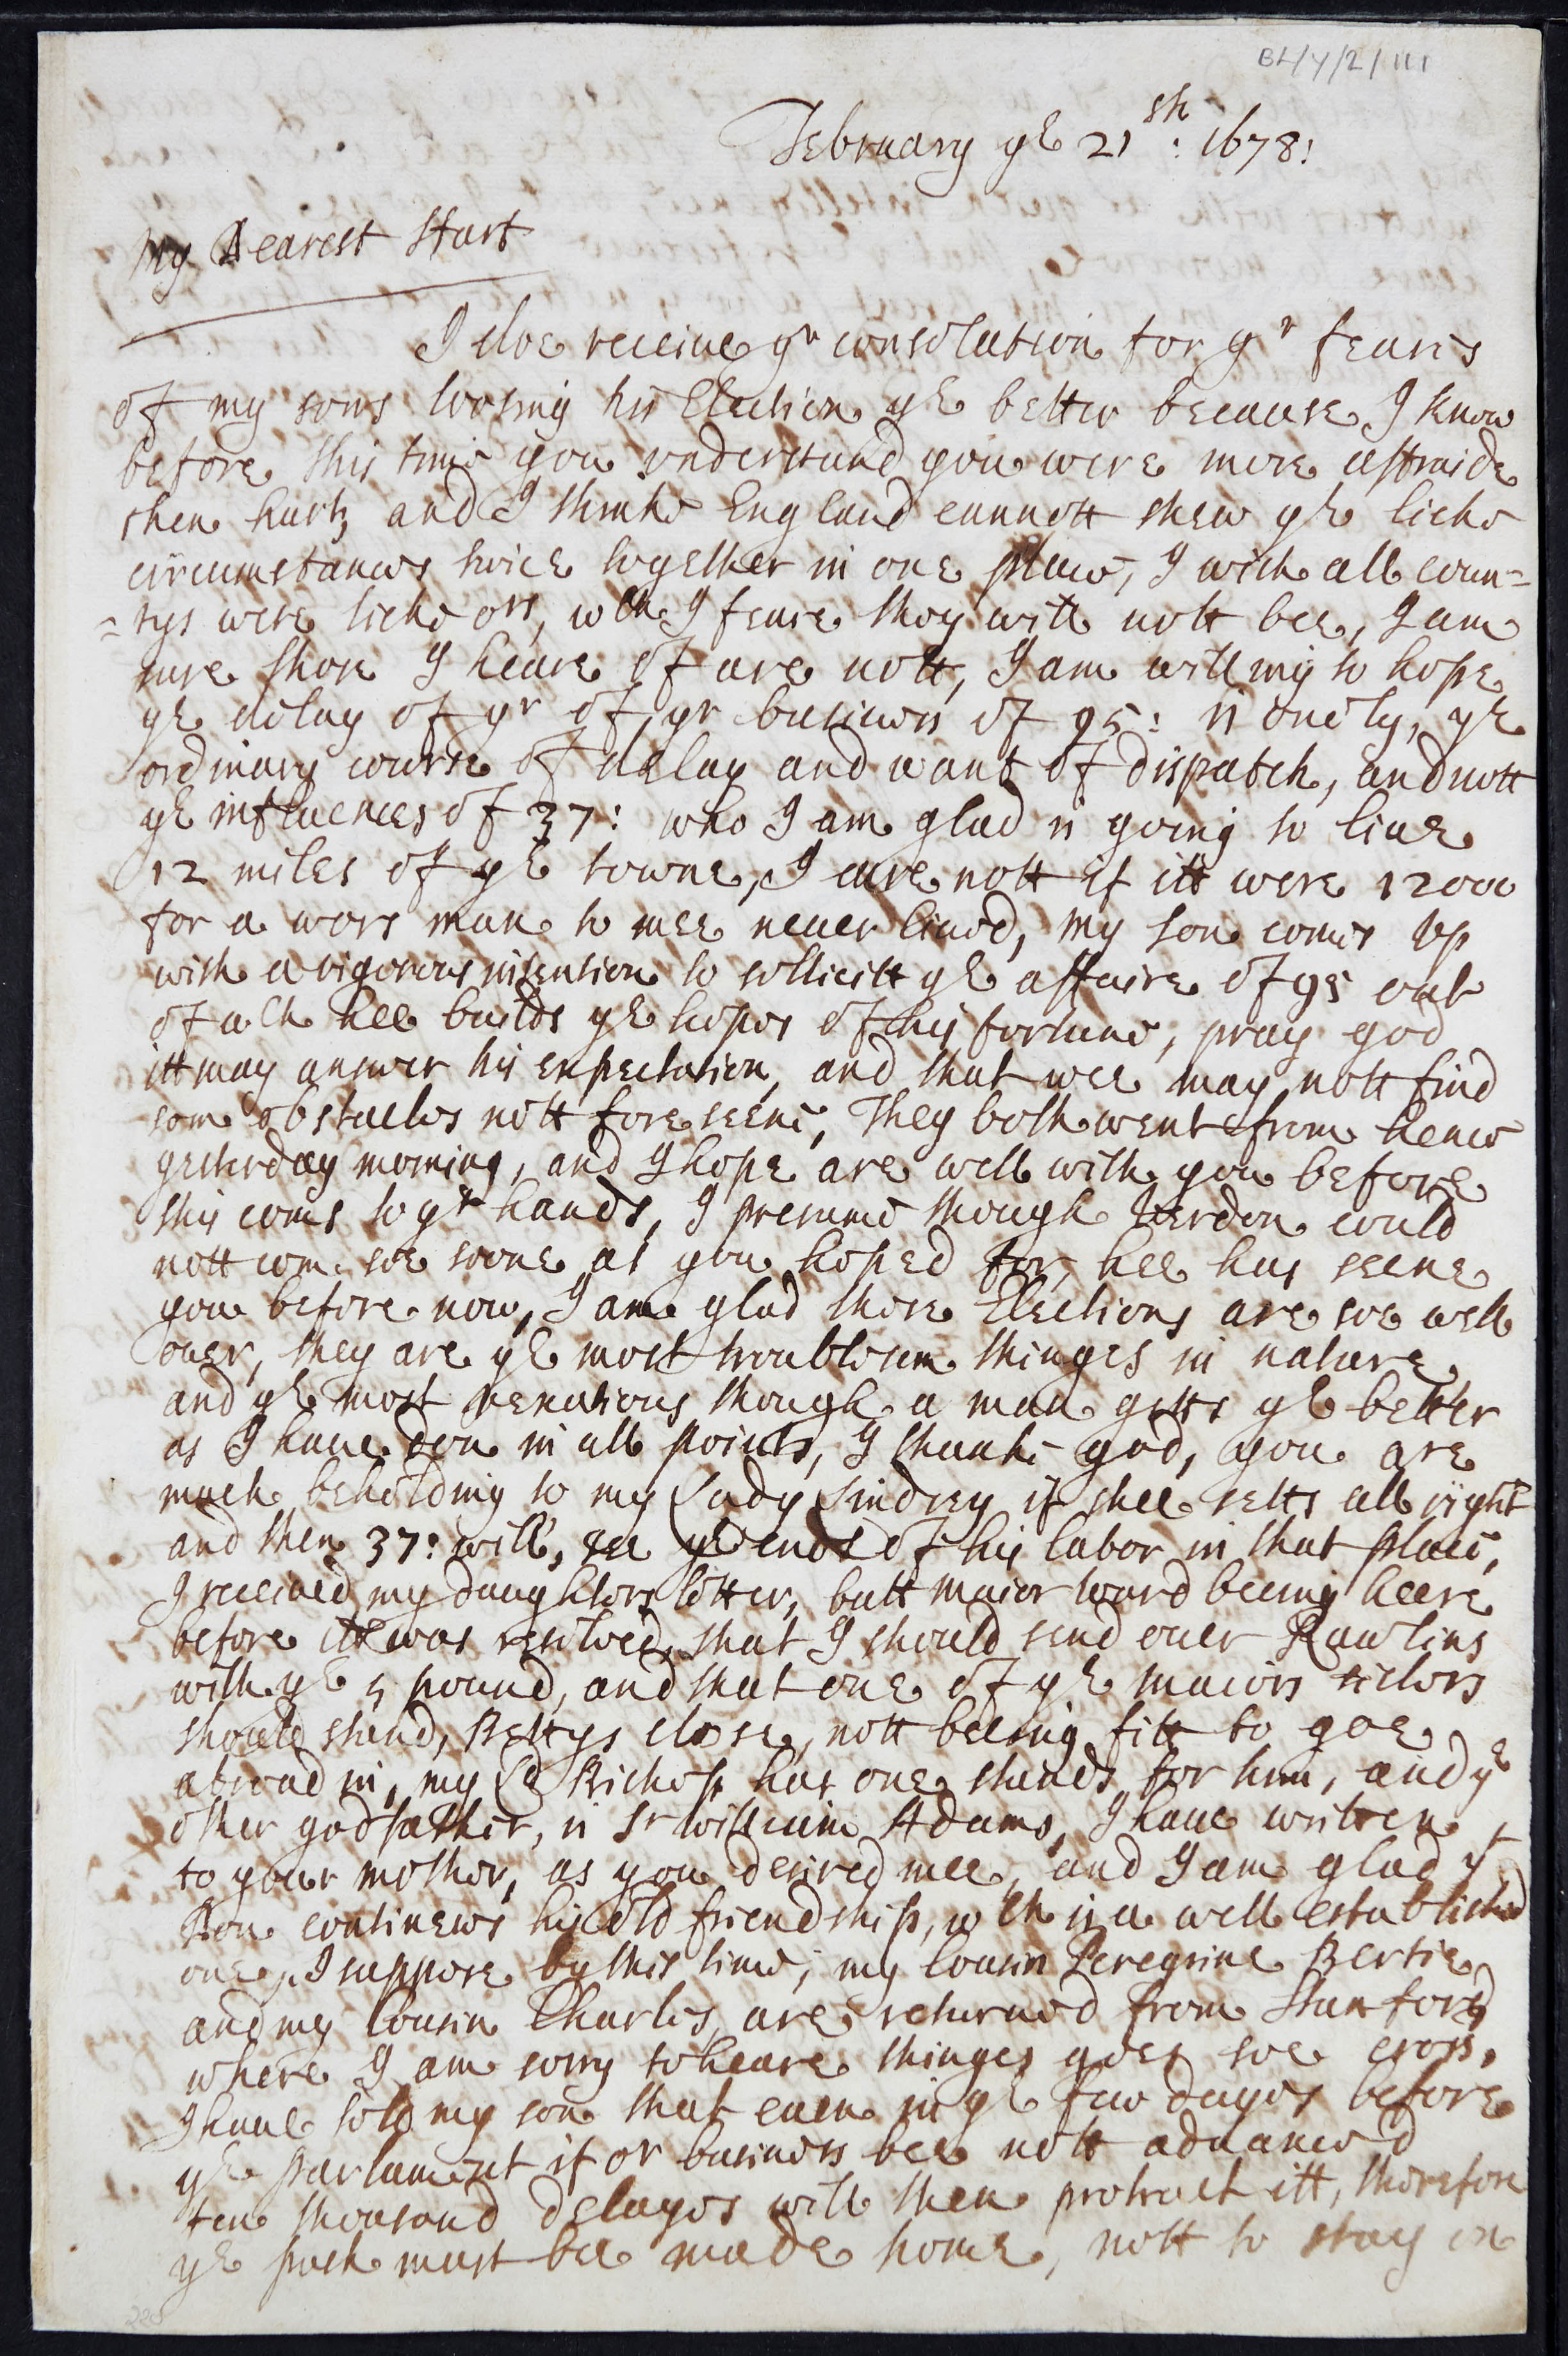 BL/Y/2/111
February ye 21th: 1678:
My Dearest Hart
I doe receive yr consolation for yr feares
of my sons loosing his Election ye better because I know
before this time you understand you were more affraide
then hurt, and I thinke England cannott shew ye licke
circumstances twice together in one place, I wish all coun=
=tys were licke ors, wch I feare they will nott bee, I am
sure those I heare of are nott, I am willing to hope
ye delay of yr of yr business of 95: is onely, ye
ordinary course of delay and want of dispatch, and nott
ye influences of 37: who I am glad is going to live
12 miles of ye towne, I care nott if itt were 12000
for a wors man to mee never lived, my son comes up
with a vigorous intention to sollicitt ye affaire of 95 out
of wch hee builds ye hopes of his fortune, pray god
itt may answer his expectation, and that wee may nott find
som obstacles nott fore seene, They both went from hence
yesterday morning, and I hope are well with you before
this coms to yr hands, I presume though Verdon could
nott com soe soone as you hoped for, hee has seene
you before now, I am glad those Elections are soe well
over, they are ye most troublesom thinges in nature
and ye most vexatious though a man getts ye better
as I have don in all points, I thanke god, you are
much beholding to my Lady Lindsey if shee setts all right
and then 37: will, see ye ends of his labor in that place,
I received my daughters letter, butt maior word beeing heere
before itt was resolved, that I should send over Rawlins
with ye 5 pound, and that one of ye maiors sisters
should stand, Bettys close, nott beeing fitt to goe
abroad in, my Ld Bishop has one stands for him, and ye
other godfather, is Sr william Adams, I have written
to your mother, as you desired mee, and I am glad yt
Don continews his old friendship, wch is a well established
one, I suppose by this time, my Cousin Peregrine Bertie
and my Cousin Charles, are returned from Stanford
where I am sorry to heare thinges goes soe cross,
I have told my son that even in ye few dayes before
ye parlament if or business bee nott advanced
ten thousand delayes will then protract itt, therefore
ye push must bee made home, nott to stay in